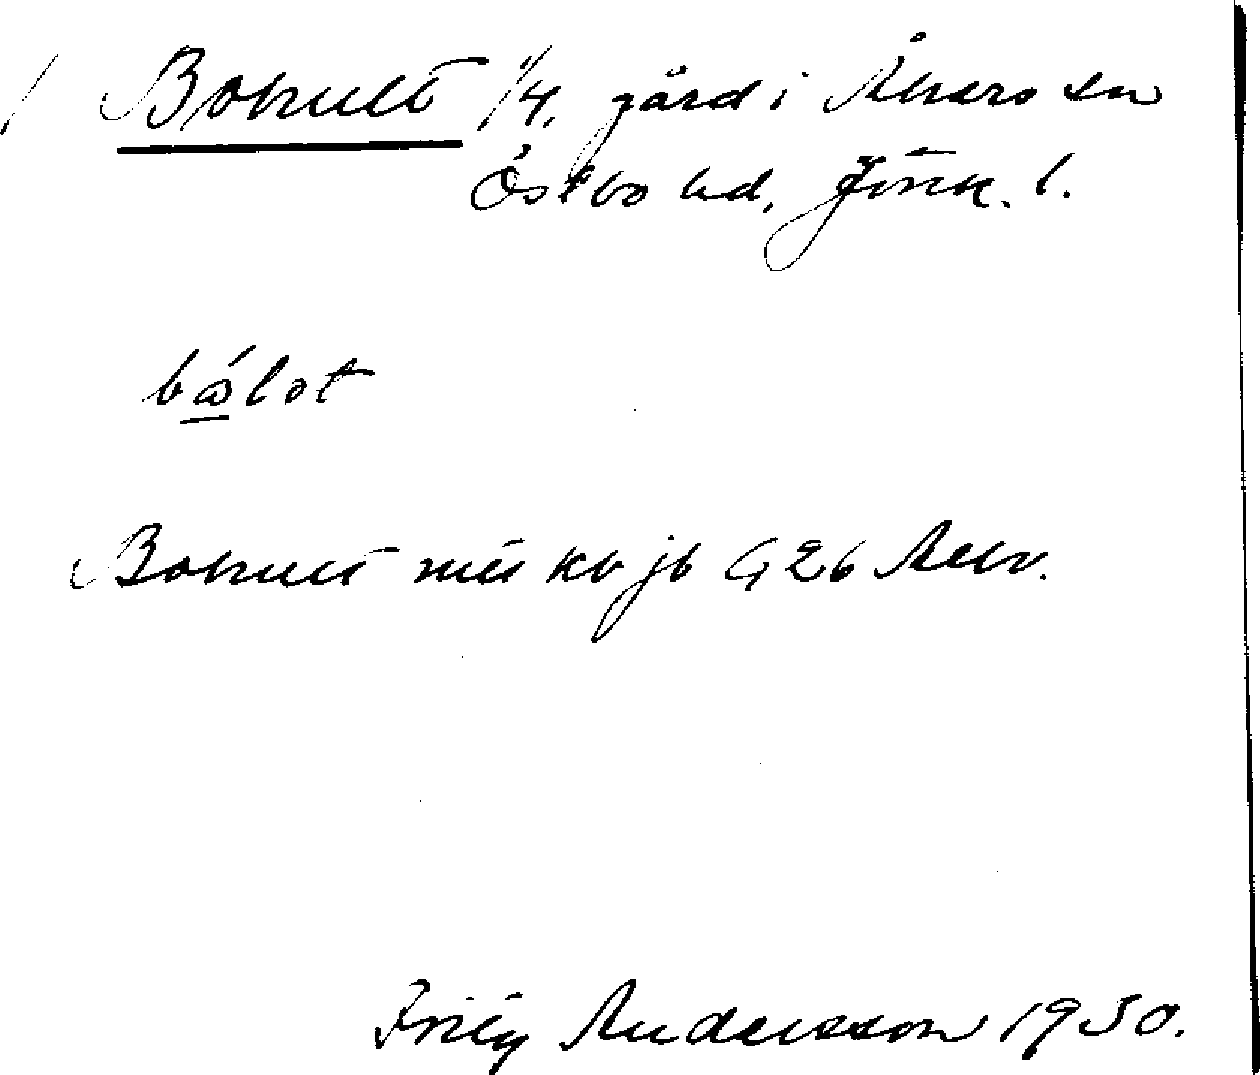 Bohult 1/4, gård i Åkers sn
Östbo hd, Jönk. l.
bålot
Bohult mtl kb jb
Fritz Andersson 1930.